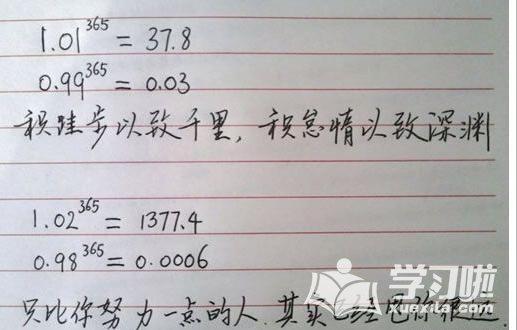 1.01³⁶⁵ = 37.8
0.99³⁶⁵ = 0.03
积跬步以致千里，积怠情以致深渊
1.02³⁶⁵ = 1377.4
0.98³⁶⁵ = 0.0006
只比你努力一点的人.其实
学习啦
xuexila.com